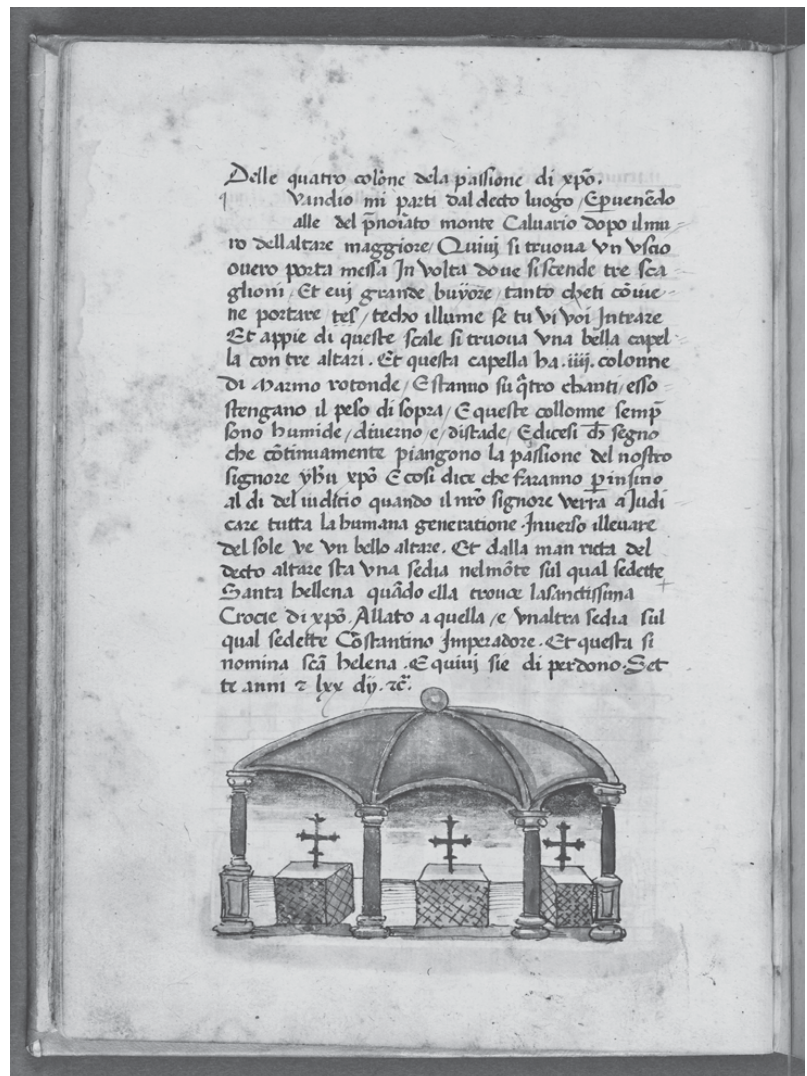 Delle quatro colone dela passione di xpõ.
Vandio mi parti dal decto luogo / E puenēdo
alle del pñoiato monte Caluario dopo il mu
ro dellaltare maggiore / Quiuj si truoua vn vscio
ouero porta messa In volta doue si scende tre sca
glioni / Et euj grande buÿore / tanto cheti cōuie
ne portare tes / techo illume se tu vi voi Intrare
Et appie di queste scale si truoua vna bella capel
la con tre altari . Et questa capella ha .iiij. colonne
di Marmo rotonde / E stanno su q̄tro chanti / esso
stengano il peso di sopra / E queste collonne semp̄
sono humide / diuerno / e / distade / E dicesi ch̄ segno
che cōtinuamente piangono la passione del nostro
signore yhū xpō E cosi dice che faranno p̄ insino
al di del iudicio quando il nrō signore verra a Judi
care tutta la humana generatione . Inuerso illeuare
del sole ve vn bello altare . Et dalla man ricta del
decto altare sta vna sedia nel mōte sul qual sedette
Santa hellena quādo ella trouoe lasanctissima
Crocie di xpō . Allato a quella / e vnaltra sedia sul
qual sedette Cōstantino Imperadore . Et questa si
nomina scā helena . E quiuj sie di perdono . Set
te anni ⁊ lxx dÿ . ⁊c̃.